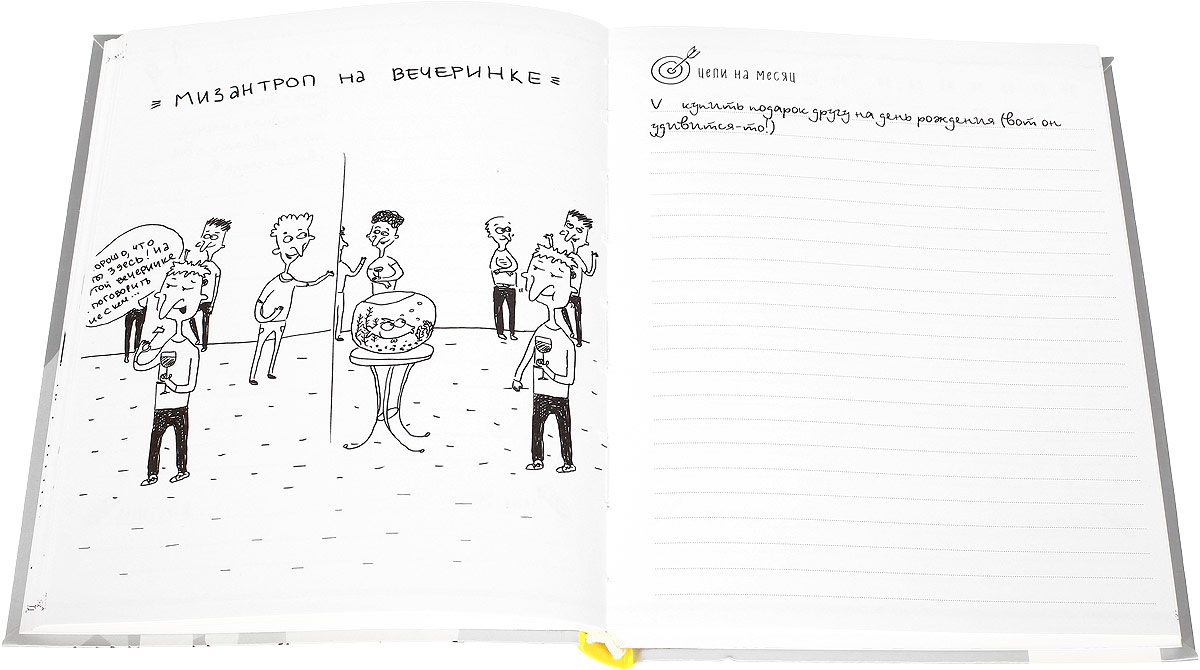 МИЗАНТРОП НА ВЕЧЕРИНКЕ
ОРОШО, ЧТО
ТЫ ЗДЕСЬ! НА
ТОЙ ВЕЧЕРИНКЕ
ПОГОВОРИТЬ
НЕ С КЕМ...
ЦЕЛИ НА МЕСЯЦ
V купить подарок другу на день рождения (вот он
удивится-то!)